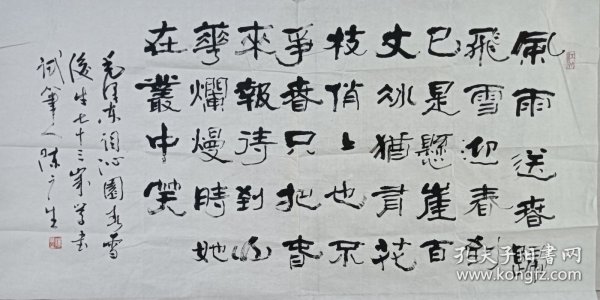 風雨送春歸
飛雪迎春到
已是懸崖百
丈冰猶有花
枝俏〻也不
爭春只把春
來報待到山
華爛熳時她
在叢中笑
毛澤東詞沁園春雪
後生七十三歲學書
試筆人陳广生
孔夫子旧书网